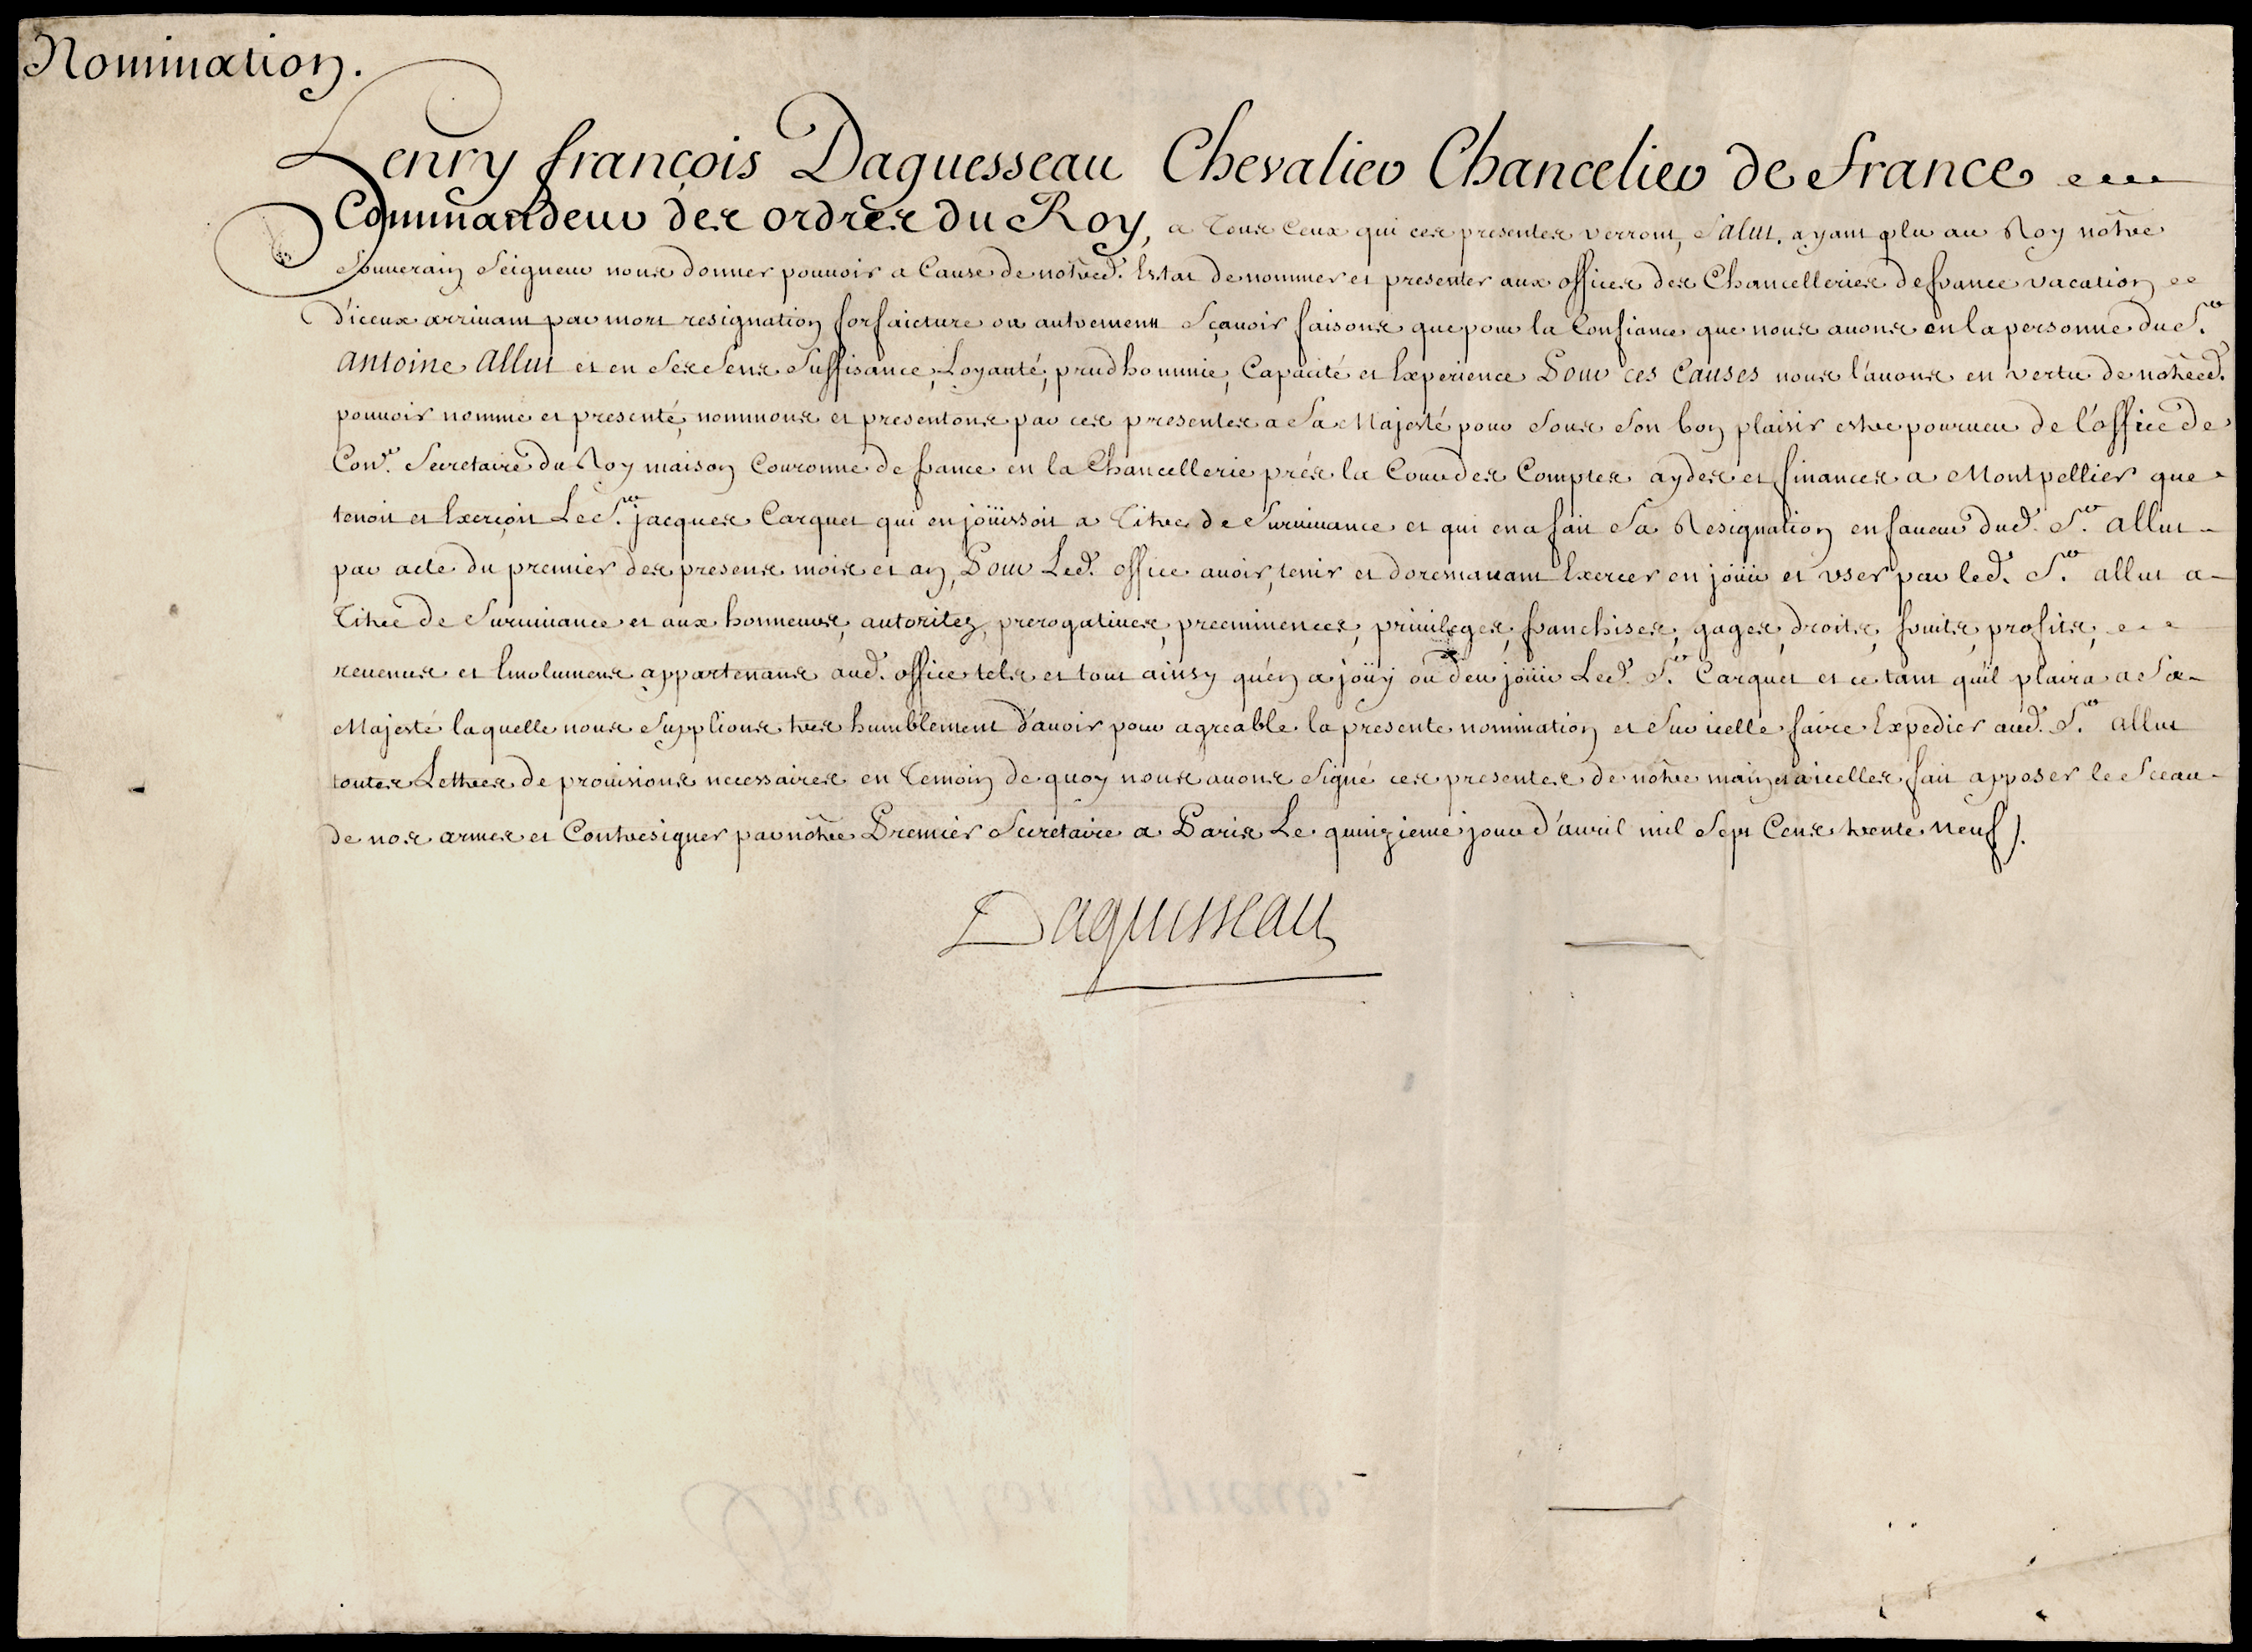 Nomination.
Henry françois Daguesseau Chevalier Chancelier de france
Commandeur des ordres du Roy, a tous ceux qui ces presentes verront, Salut. ayant plu au Roy nôtre
Souverain Seigneur nous donner pouuoir a Cause de nôtred. Estat de nommer et presenter aux offices des Chancelleries de france vacation
d'iceux arriuant par mort resignation forfaicture ou autrement Sçauoir faisons que pour la Confiance que nous auons en la personne du S.r
antoine allut et en Ses Sens Suffisance, Loyauté, prudhommie, Capacité et Experience Pour ces Causes nous l'auons en vertu de nôtred.
pouuoir nommé et presenté, nommons et presentons par ces presentes a Sa Majesté pour Sous Son bon plaisir estre pourueu de l'office de
Con.er Secretaire du Roy maison Couronne de france en la Chancellerie prés la Cour des Comptes aydes et finances a Montpellier que
tenoit et Exerçoit Le S.r jacques Carquet qui en joüissoit a Titre de Suruiuance et qui en a fait Sa Resignation en faueur dud. S.r allut
par acte du premier des presens mois et an, Pour Led. office auoir, tenir et doresnauant Exercer en joüir et vser par led. S.r allut a
Titre de Suruiuance et aux honneurs, autoritez, prerogatiues, preeminences, priuileges, franchises, gages, droits, fruits, profits,
reuenus et Emolumens appartenans aud. office tels et tout ainsy qu'en a joüy ou deu joüir Led. S.r Carquet et ce tant qu'il plaira a Sa
Majesté laquelle nous Supplions tres humblement d'auoir pour agreable la presente nomination et Sur icelle faire Expedier aud. S.r allut
toutes Lettres de prouisions necessaires en Temoin de quoy nous auons Signé ces presentes de nôtre main et a icelles fait apposer le Sceau
de nos armes et Contresigner par nôtre Premier Secretaire a Paris Le quinzieme jour d'auril mil Sept Cens trente neuf ).
Daguesseau